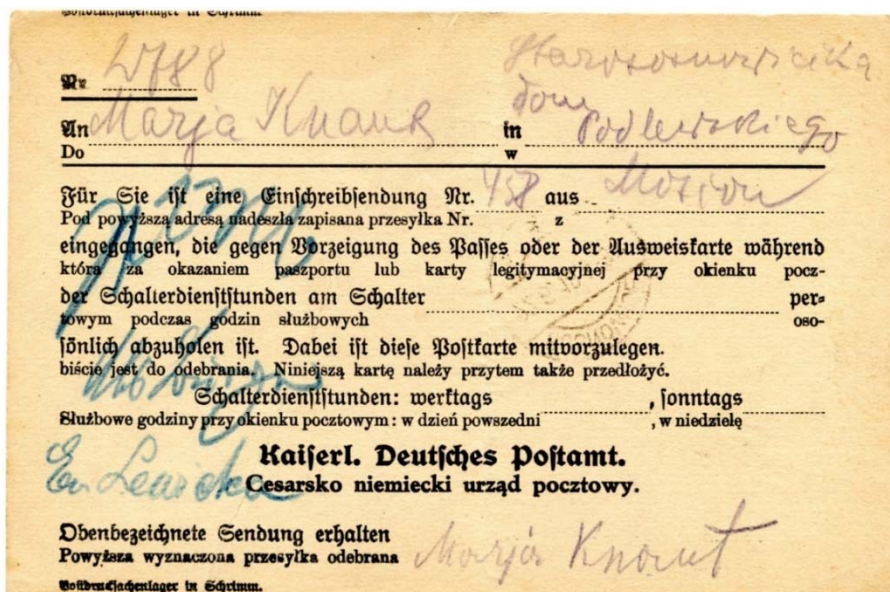 Postdrucksachenlager in Schrimm.
Nr
An Marja Knaut in Podlewskiego
Do w
Für Sie ist eine Einschreibsendung Nr. 458 aus
Pod powyższą adresą nadeszła zapisana przesyłka Nr. z
eingegangen, die gegen Vorzeigung des Passes oder der Ausweiskarte während
która za okazaniem paszportu lub karty legitymacyjnej przy okienku pocz-
der Schalterdienststunden am Schalter per-
towym podczas godzin służbowych oso-
sönlich abzuholen ist. Dabei ist diese Postkarte mitvorzulegen.
biście jest do odebrania. Niniejszą kartę należy przytem także przedłożyć.
Schalterdienststunden: werktags , sonntags
Służbowe godziny przy okienku pocztowym: w dzień powszedni , w niedzielę
Kaiserl. Deutsches Postamt.
Cesarsko niemiecki urząd pocztowy.
Obenbezeichnete Sendung erhalten
Powyższa wyznaczona przesyłka odebrana Marja Knaut
Postdrucksachenlager in Schrimm.